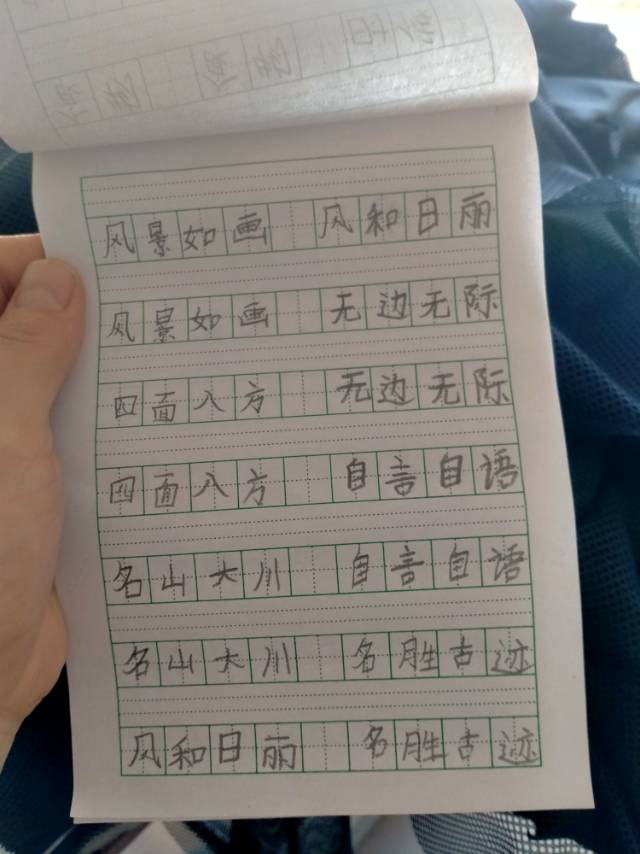 风景如画 风和日丽
风景如画 无边无际
四面八方 无边无际
四面八方 自言自语
名山大川 自言自语
名山大川 名胜古迹
风和日丽 名胜古迹